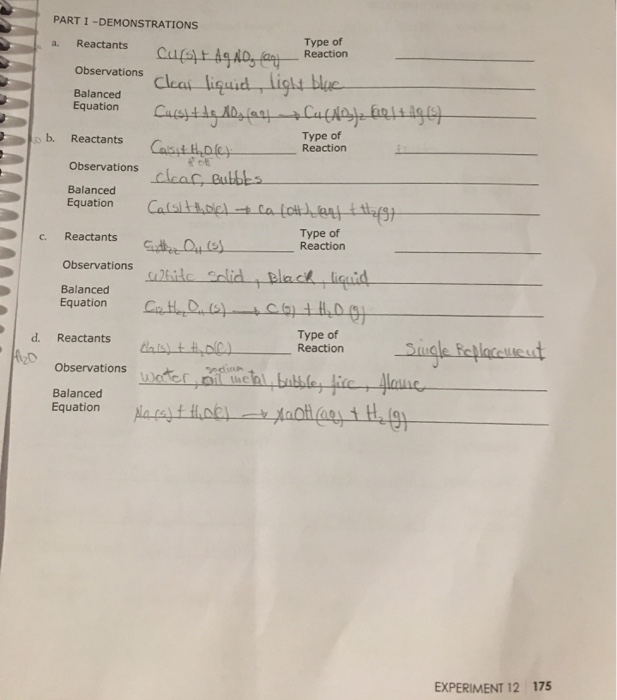 PART I -DEMONSTRATIONS
a. Reactants Cu(s) + AgNO3 (aq) Type of Reaction
Observations Clear liquid, light blue
Balanced Equation Cu(s) + AgNO3(aq) → Cu(NO3)2 (aq) + Ag(s)
b. Reactants Ca(s) + H2O(l) Type of Reaction
Observations clear, Bubbles
Balanced Equation Ca(s) + H2O(l) → Ca(OH)2(aq) + H2(g)
c. Reactants C12H22O11 (s) Type of Reaction
Observations White solid, Black, liquid
Balanced Equation C12H22O11(s) → C(s) + H2O(g)
d. Reactants Na(s) + H2O(l) Type of Reaction Single Replacement
H2O
sodium
Observations water, metal, bubble, fire, flame
Balanced Equation Na(s) + H2O(l) → NaOH(aq) + H2(g)
EXPERIMENT 12 175